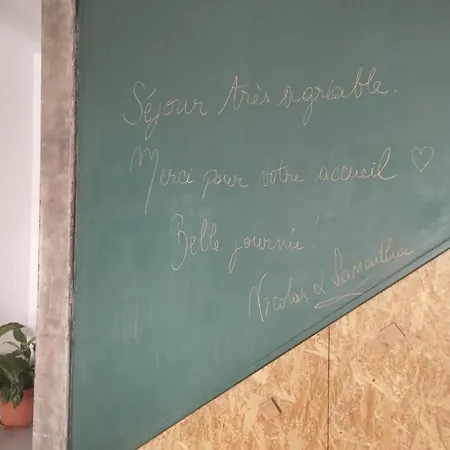 Séjour très agréable.
Merci pour votre accueil ♡
Belle journée !
Nicolas & Samantha